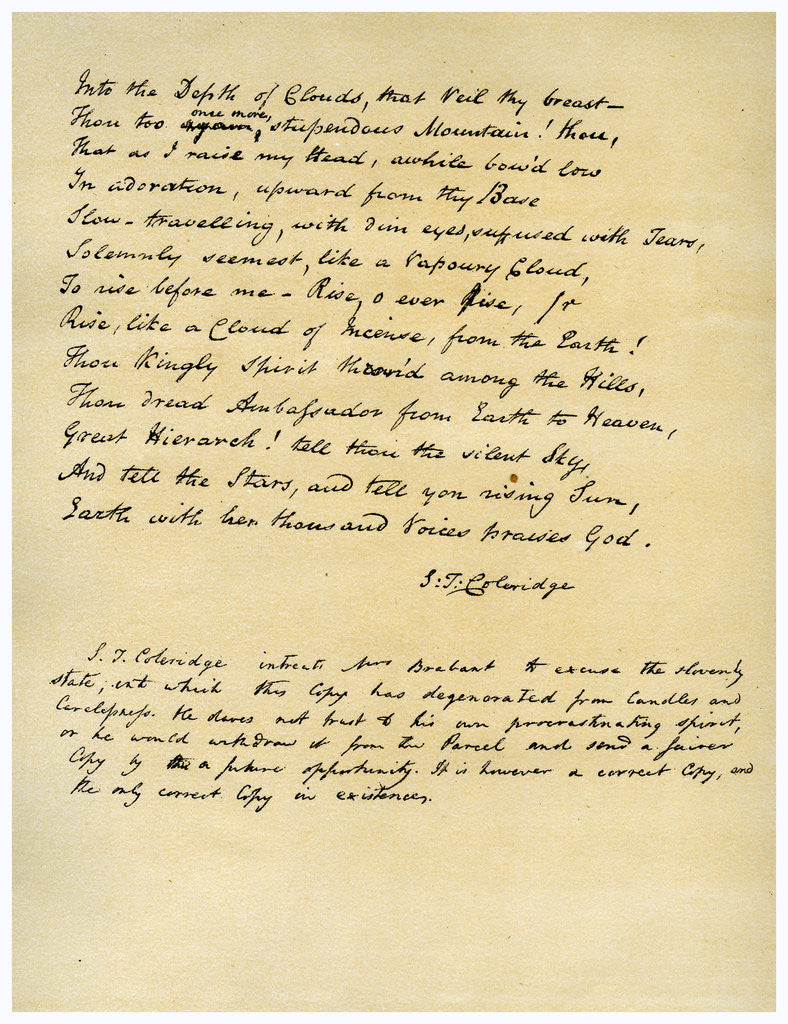 Into the Depth of Clouds, that Veil thy breast—
Thou too again, once more, stupendous Mountain! thou,
That as I raise my Head, awhile bow'd low
In adoration, upward from thy Base
Slow-travelling, with dim eyes, suffused with Tears,
Solemnly seemest, like a Vapoury Cloud,
To rise before me — Rise, o ever Rise,
Rise, like a Cloud of Incense, from the Earth!
Thou Kingly Spirit thron'd among the Hills,
Thou dread Ambassador from Earth to Heaven,
Great Hierarch! tell thou the silent Sky,
And tell the Stars, and tell yon rising Sun,
Earth with her thousand Voices praises God.
S: T: Coleridge
S. T. Coleridge intreats Mrs Brabant to excuse the slovenly
state, into which this Copy has degenerated from Candles and
Carelessness. He dares not trust to his own procrastinating spirit,
or he would withdraw it from the Parcel and send a fairer
Copy by a future opportunity. It is however a correct Copy, and
the only correct Copy in existence.